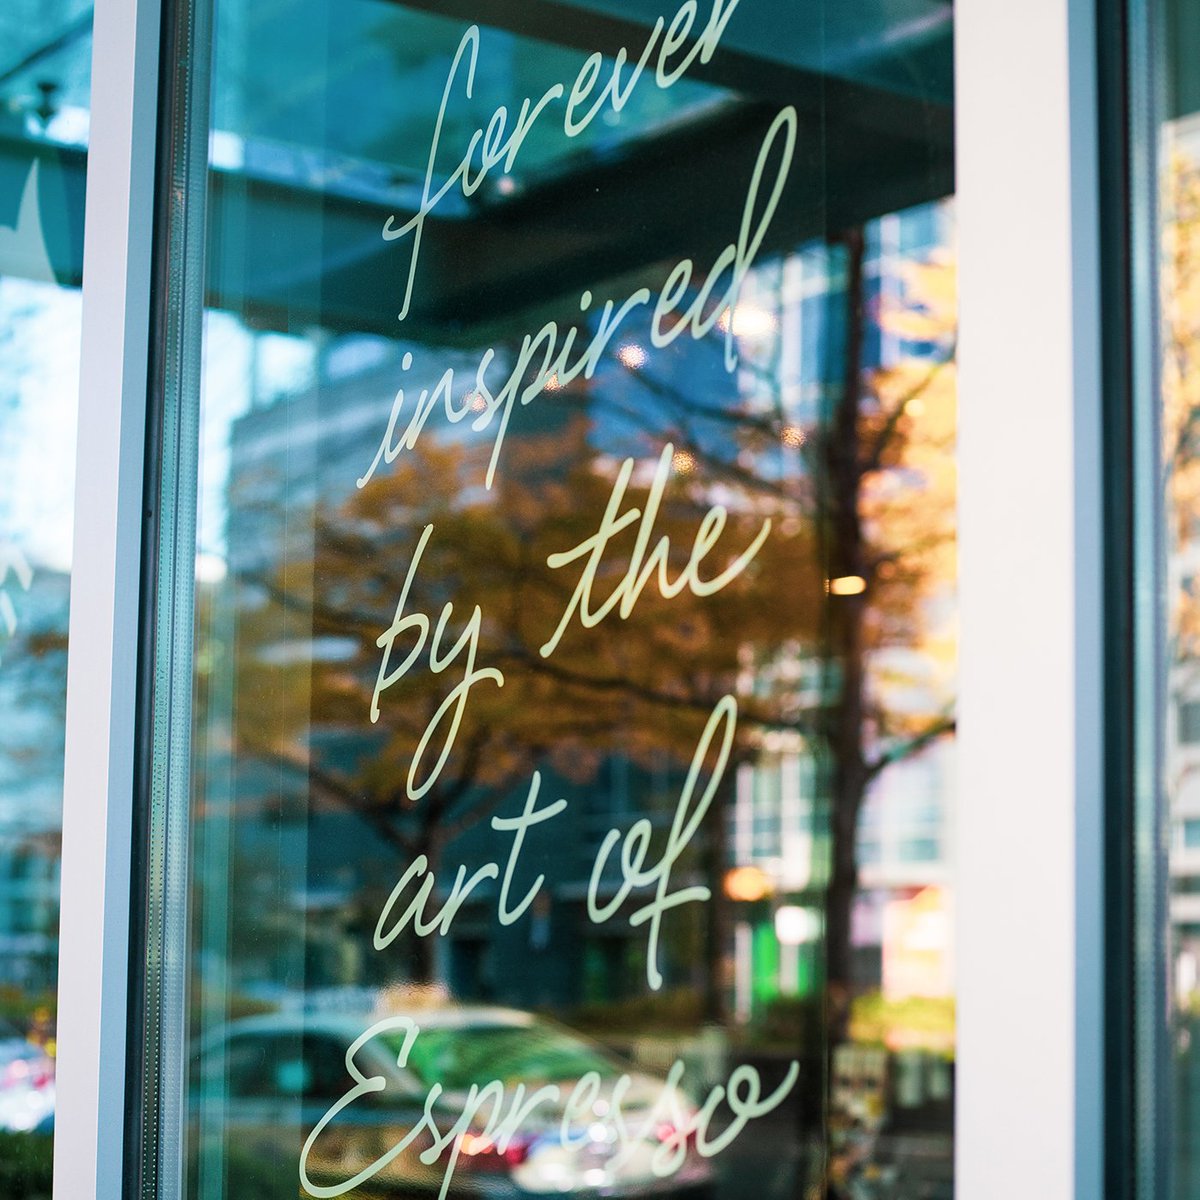 forever
inspired
by the
art of
Espresso